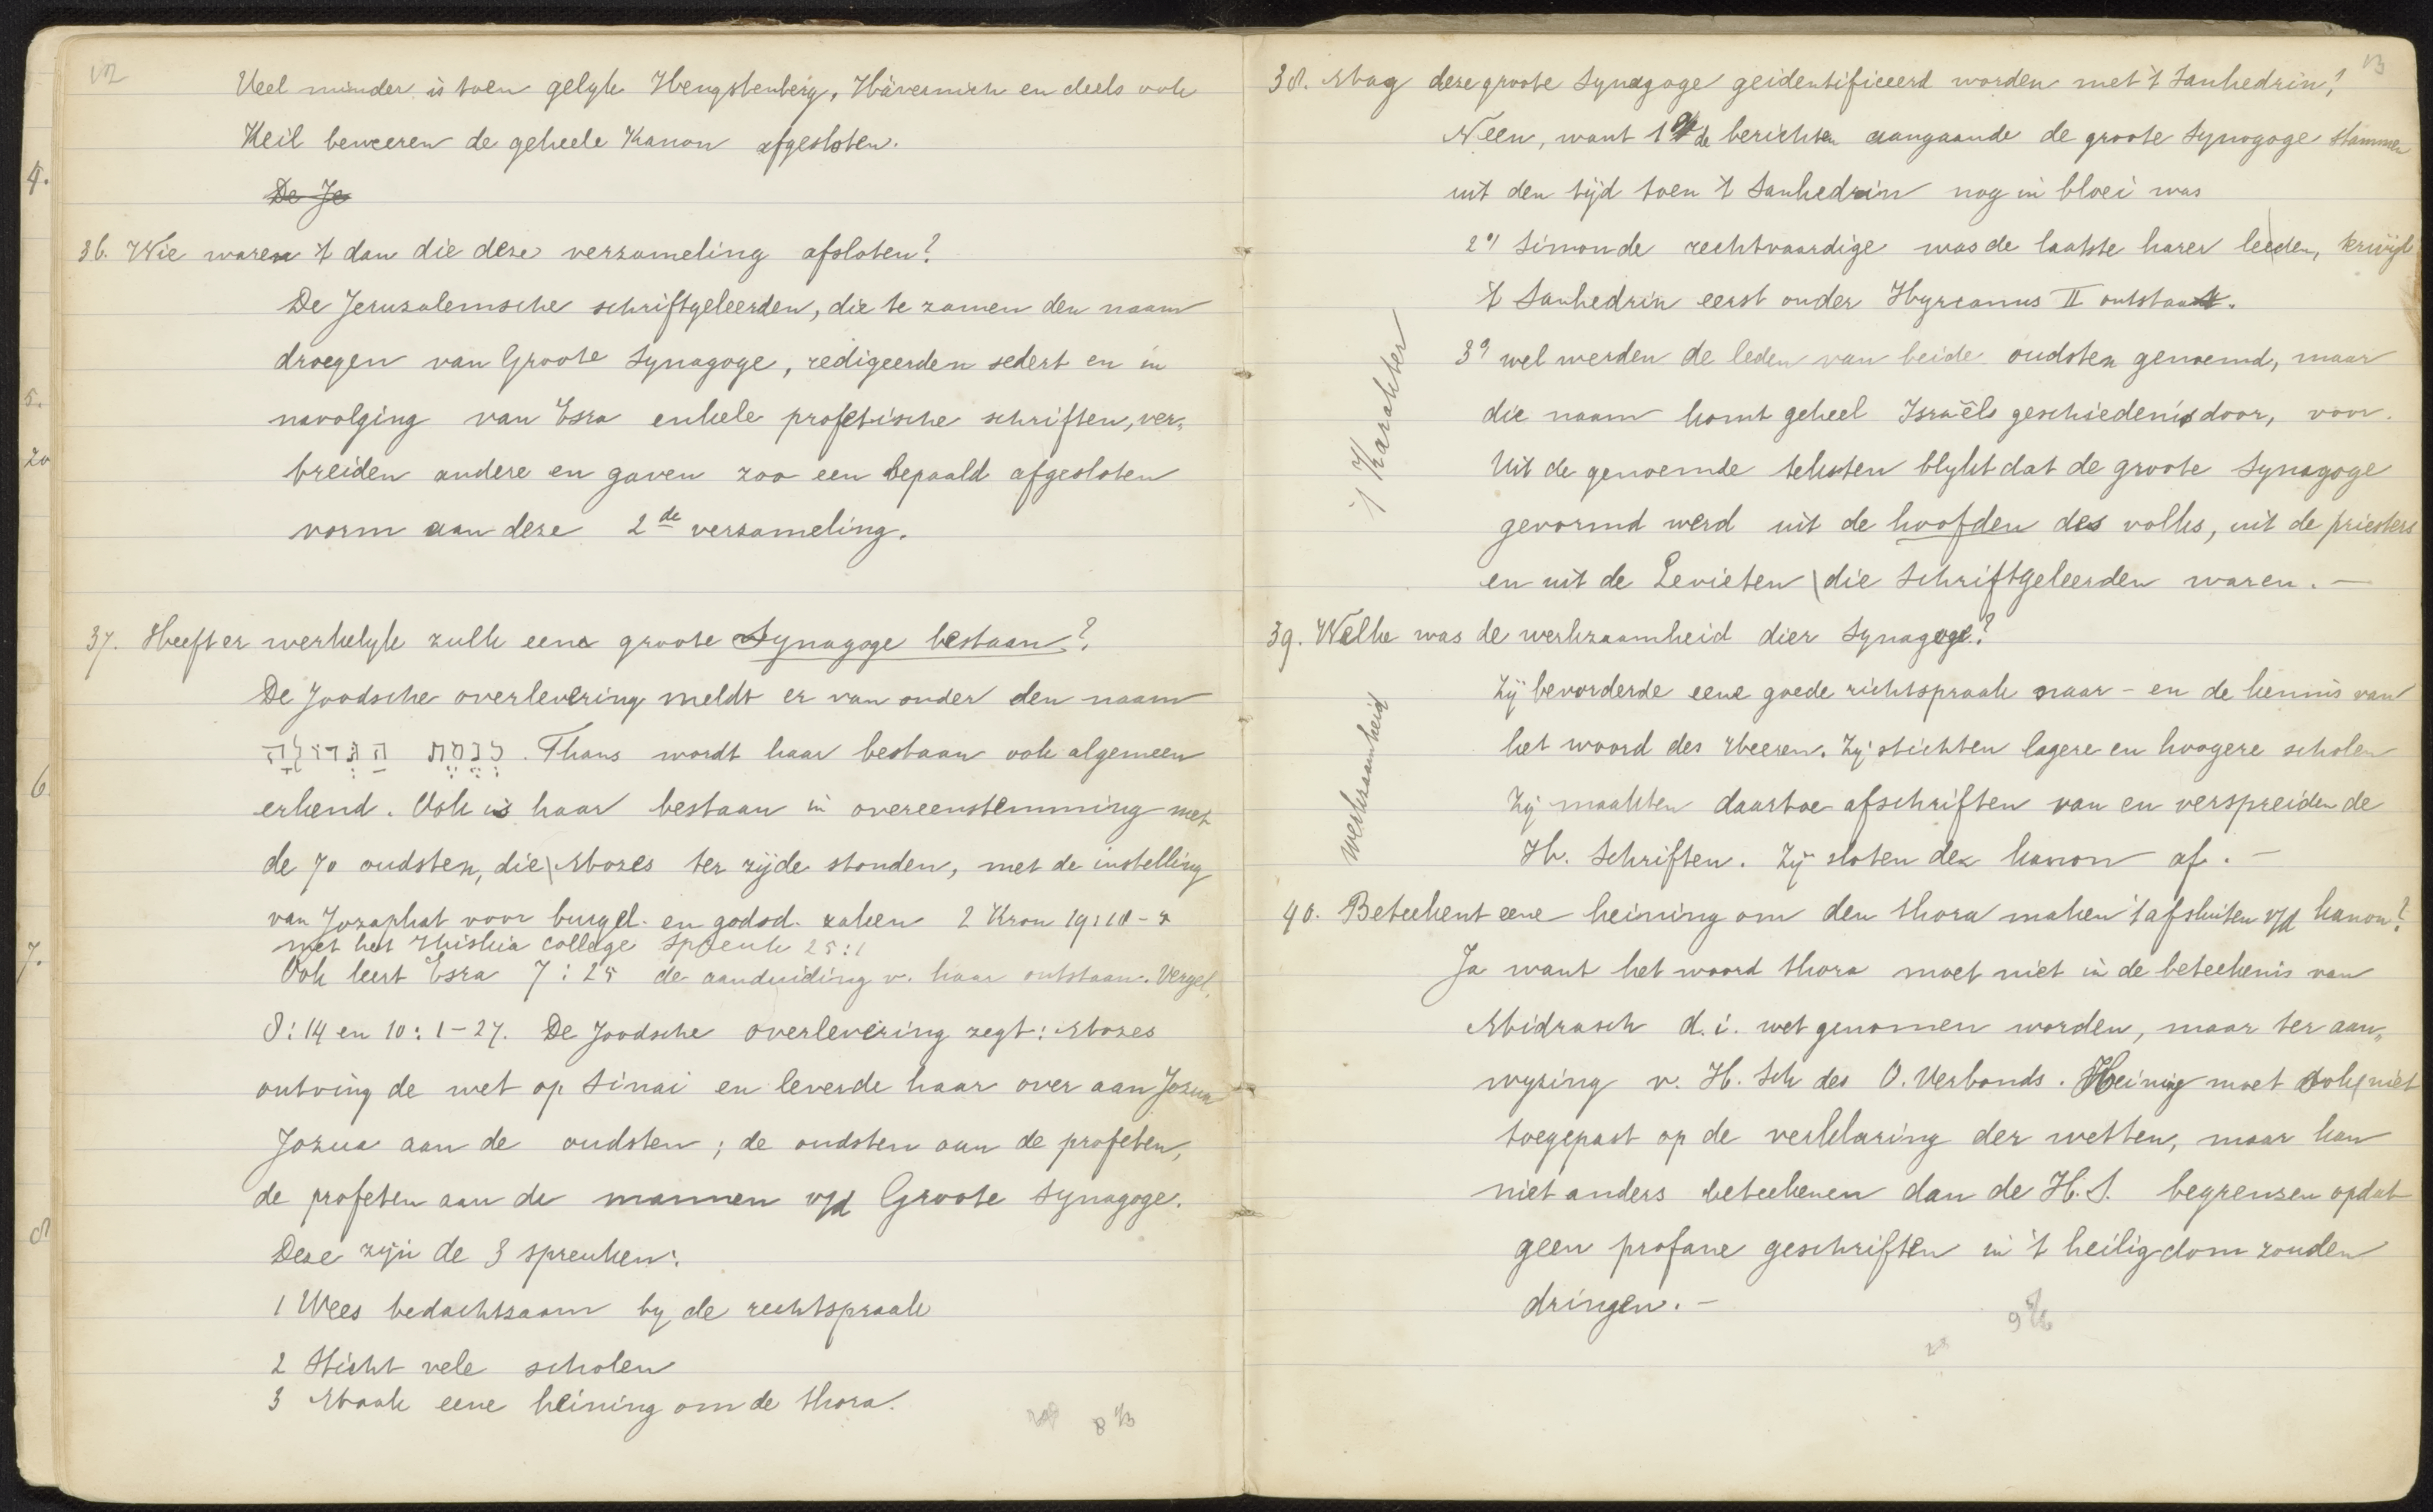 12
Veel minder is toen gelyk Hengstenberg, Hävernich en deels ook
Keil beweeren de geheele Kanon afgesloten.
De Je
36. Wie waren 't dan die deze verzameling afsloten?
De Jeruzalemsche schriftgeleerden, die te zamen den naam
droegen van Groote Synagoge, redigeerden sedert en in
navolging van Esra enkele profetische schriften, ver„
breiden andere en gaven zoo een bepaald afgesloten
vorm aan deze 2de verzameling.
37. Heeft er werkelyk zulk eene groote Synagoge bestaan?
De Joodsche overlevering meldt er van onder den naam
כְּנֶסֶת הַגְּדוֹלָה. Thans wordt haar bestaan ook algemeen
erkend. Ook is haar bestaan in overeenstemming met
de 70 oudsten, die Mozes ter zijde stonden, met de instelling
van Jozaphat voor burgel. en godsd. zaken 2 Kron 19:10-
met het Hiskia college Spreuk 25:1
Ook leert Esra 7:25 de aanduiding v. haar ontstaan. Vergel.
8:14 en 10:1-27. De Joodsche overlevering zegt: Mozes
ontving de wet op Sinai en leverde haar over aan Jozua
Jozua aan de oudsten; de oudsten aan de profeten,
de profeten aan de mannen v/d Groote Synagoge.
Deze zijn de 3 spreuken:
1 Wees bedachtzaam by de rechtspraak
2 Sticht vele scholen
3 Maak eene heining om de thora.
13
38. Mag deze groote Synagoge geidentificeerd worden met 't Sanhedrin?
Neen, want 1º de berichten aangaande de groote Synagoge stammen
uit den tijd toen 't Sanhedrin nog in bloei was
2º Simon de rechtvaardige was de laatste harer leden, terwijl
't Sanhedrin eerst onder Hyrcanus II ontstaat.
3º wel werden de leden van beide oudsten genoemd, maar
die naam komt geheel Israëls geschiedenis door, voor.
't Karakter
Uit de genoemde teksten blykt dat de groote Synagoge
gevormd werd uit de hoofden des volks, uit de priesters
en uit de Levieten die Schriftgeleerden waren. —
39. Welke was de werkzaamheid dier Synagoge?
werkzaamheid
Zij bevorderde eene goede richtspraak naar - en de kennis van
het woord des Heeren. Zij stichten lagere en hoogere scholen
Zij maakten daartoe afschriften van en verspreiden de
H. Schriften. Zij sloten den kanon af. —
40. Beteekent eene heining om den thora maken 't afsluiten v/d kanon?
Ja want het woord thora moet niet in de beteekenis van
Midrasch d.i. wet genomen worden, maar ter aan„
wyzing v. H. Sch des O. Verbonds. Heining moet ook niet
toegepast op de verklaring der wetten, maar kan
niet anders beteekenen dan de H.S. begrenzen opdat
geen profane geschriften in 't heiligdom zouden
dringen. —
4.
5.
20
6.
7.
8